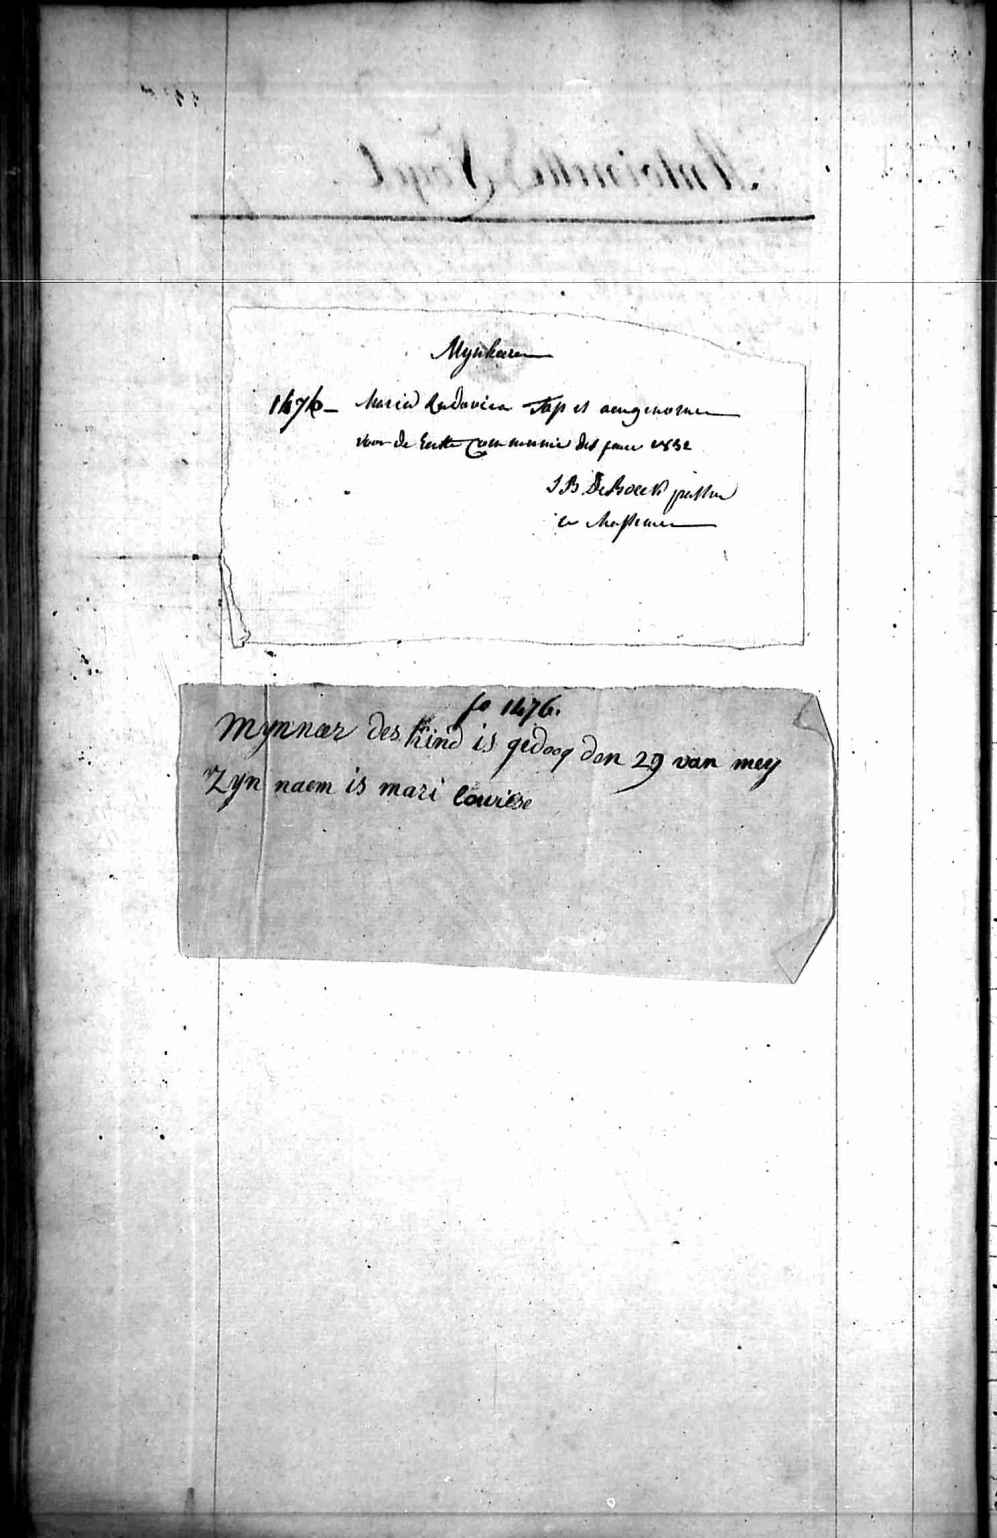 Mynheere
1476 — Maria Ludovica Tap is aengenomen
voor de Eerste Communie des jaers 1832
J B De Boeck pastor
fo 1476.
Mynneer des kind is gedoog den 29 van mey
Zyn naem is mari louiese